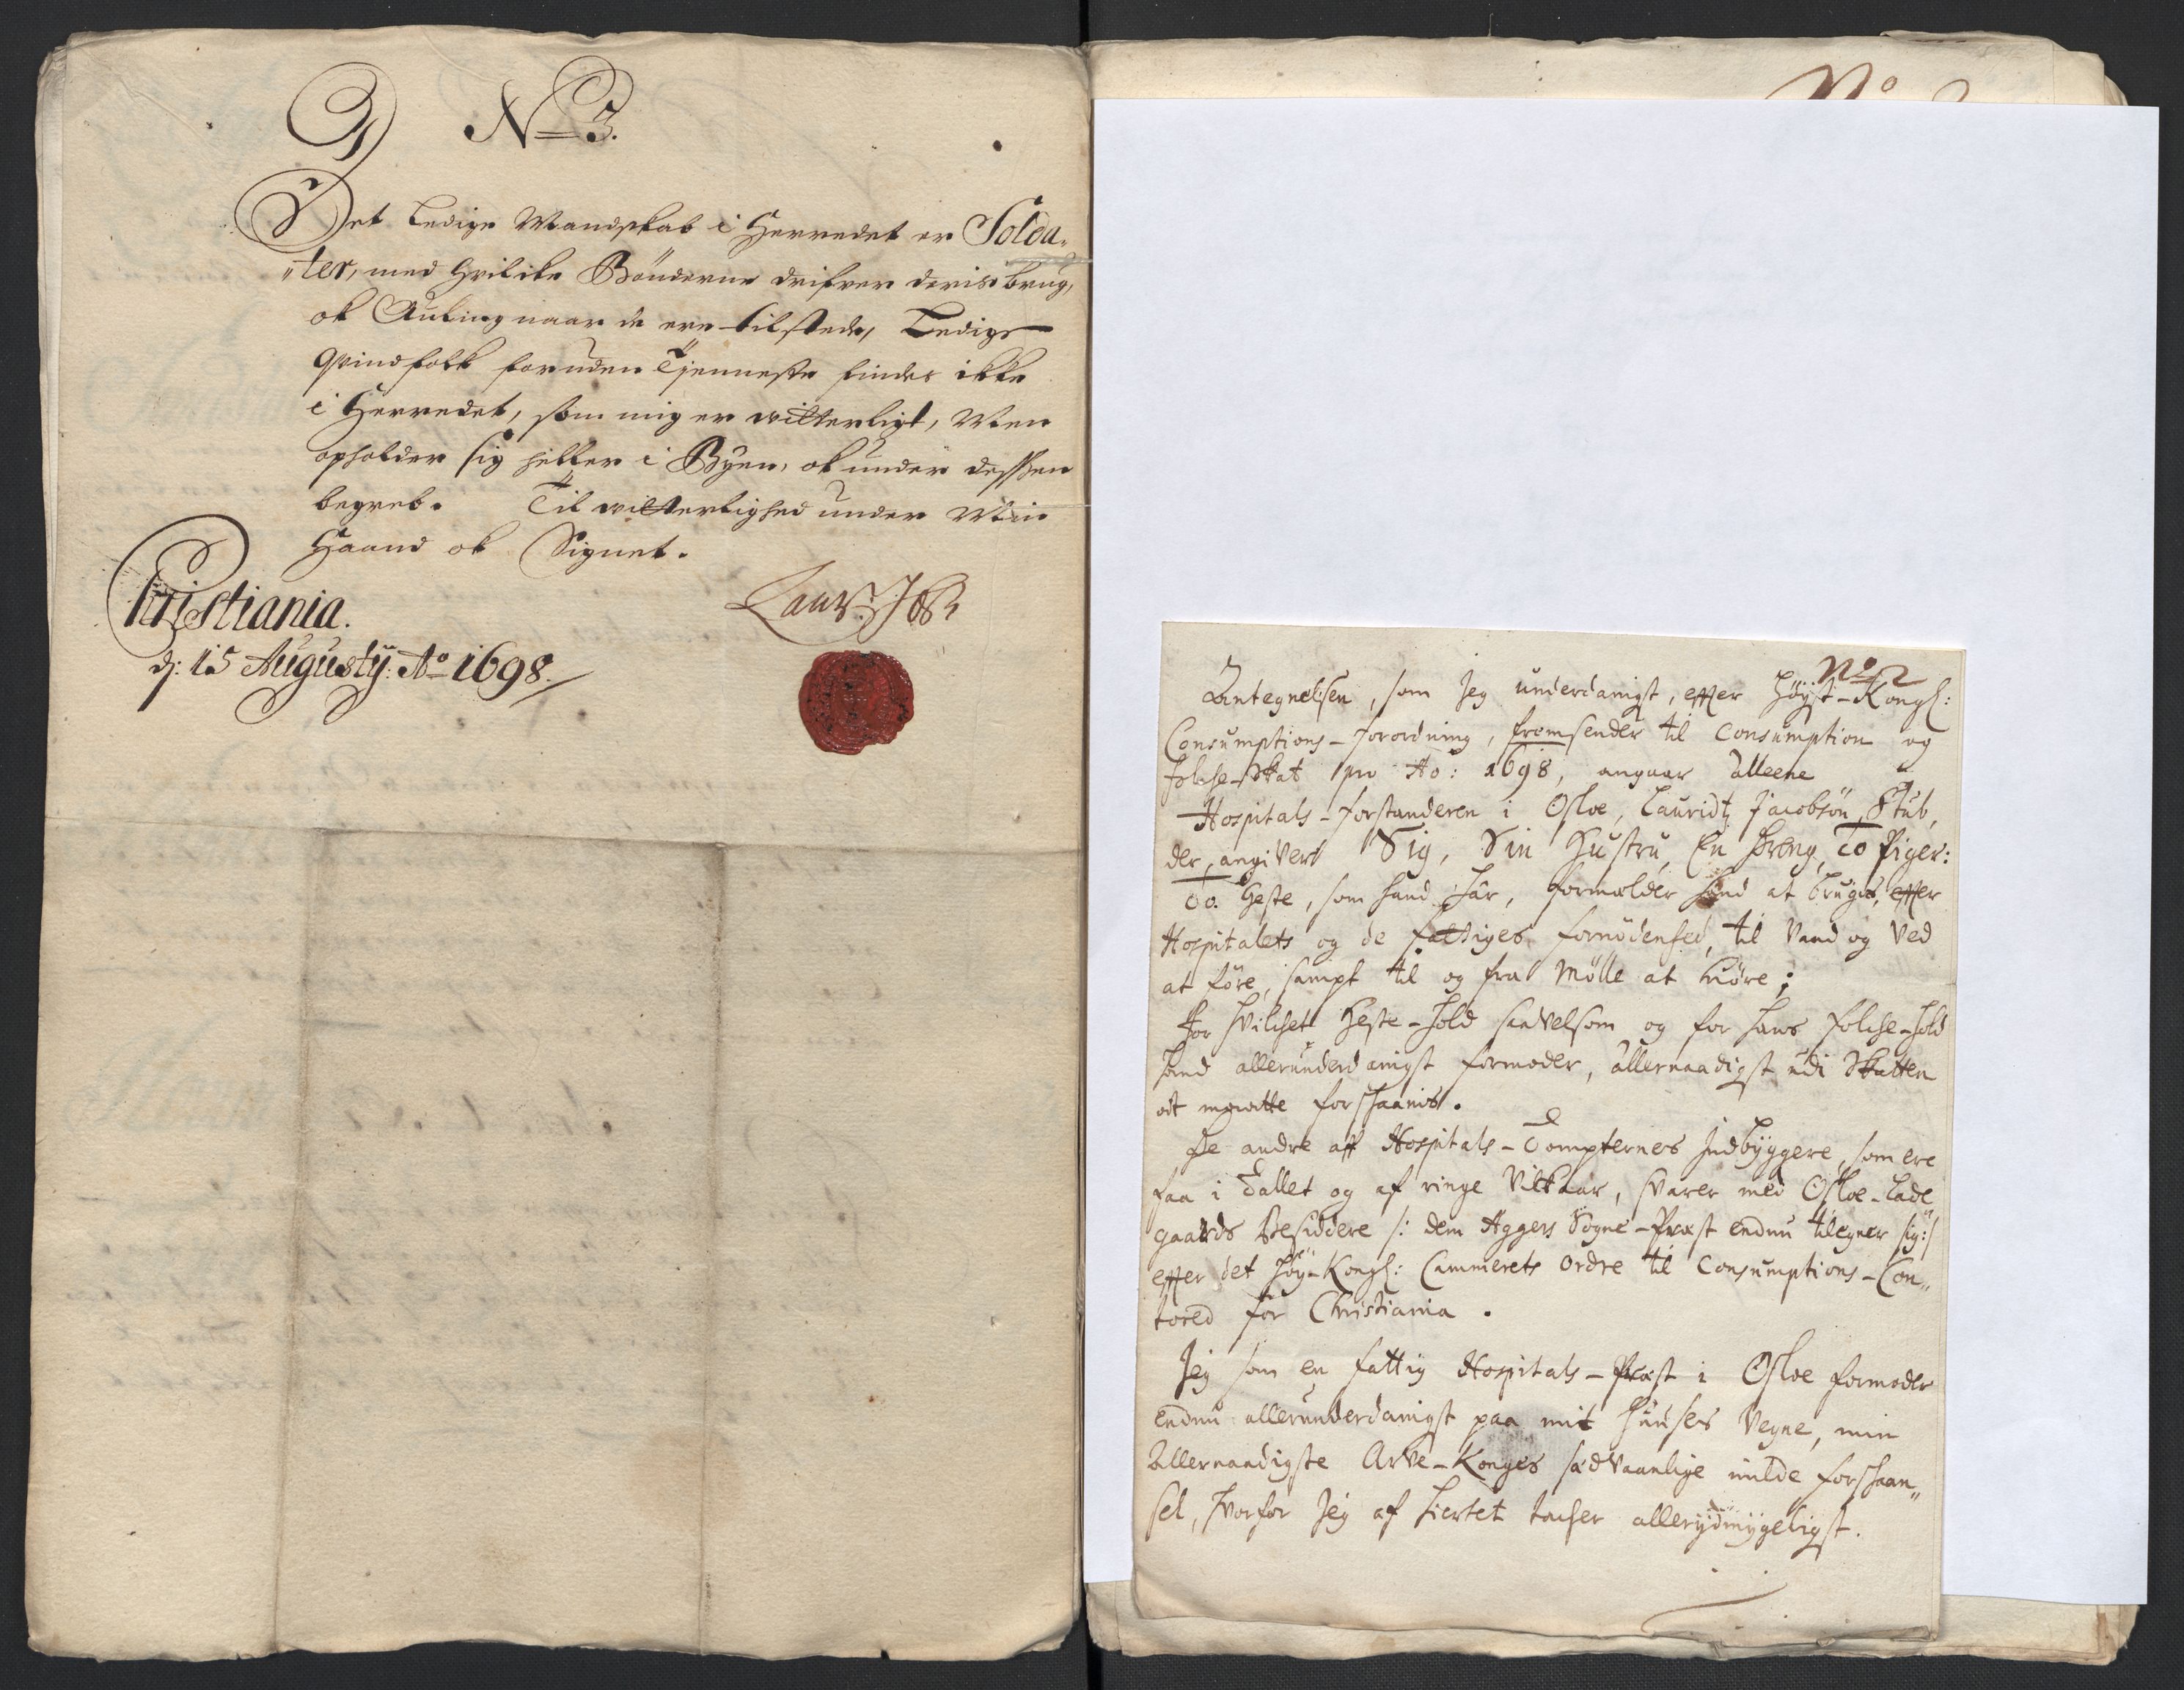 No 3.
Det Ledige Mandskab i Herredet er Solda-
ter, med hvilike Bönderne drifver deris brug,
ok Auling naar de ere tilstede, Ledige
Qvindfolk foruden Tjenneste findes ikke
i Herredet, som mig er witterligt, Men
opholder sig heller i Byen, ok under dessen
begreb. Til witterlighed under Min
Haand ok Signet.
Christiania.
d: 15 Augustij: Ao 1698.
No 2
Antegnelsen, som Jeg underdanigst, effter höyst-Kongl:
Consumptions-forordning, fremsender til Consumption og
folche-Skat pro Ao: 1698, angaar alleene
Hospitals-forstanderen i Osloe, Lauridtz Jacobsön Stub,
der angiver Sig, Sin Hustru, En dreng, To Piger:
To Heste, som hand har, formælder hand at bruges, effter
Hospitalets og de fattiges fornödenhed, til Vand og Ved
at före, sampt til og fra Mölle at kiöre;
For hvilchet Heste-hold saavelsom og for hans folche-hold
hand allerunderdanigst formoder, allernaadigst udi Skatten
at maatte forschaanis.
De andre aff Hospitals-Tompternes Indbyggere, som ere
faa i Tallet og af ringe Vilkaar, svarer med Osloe-Lade
gaards Besiddere /: dem Aggers Sogne-Præst endnu tilegner sig:/
effter det höy-Kongl: Cammerets Ordre til Consumptions-Con„
tored for Christiania.
Jeg som en fattig Hospitals-Præst i Osloe formoder
endnu allerunderdanigst paa mit Huuses Vegne, min
Allernaadigste Arve-Konges sædvaanlige milde forschaan„
sel, hvorfor Jeg af hiertet tacher allerydmygeligst.